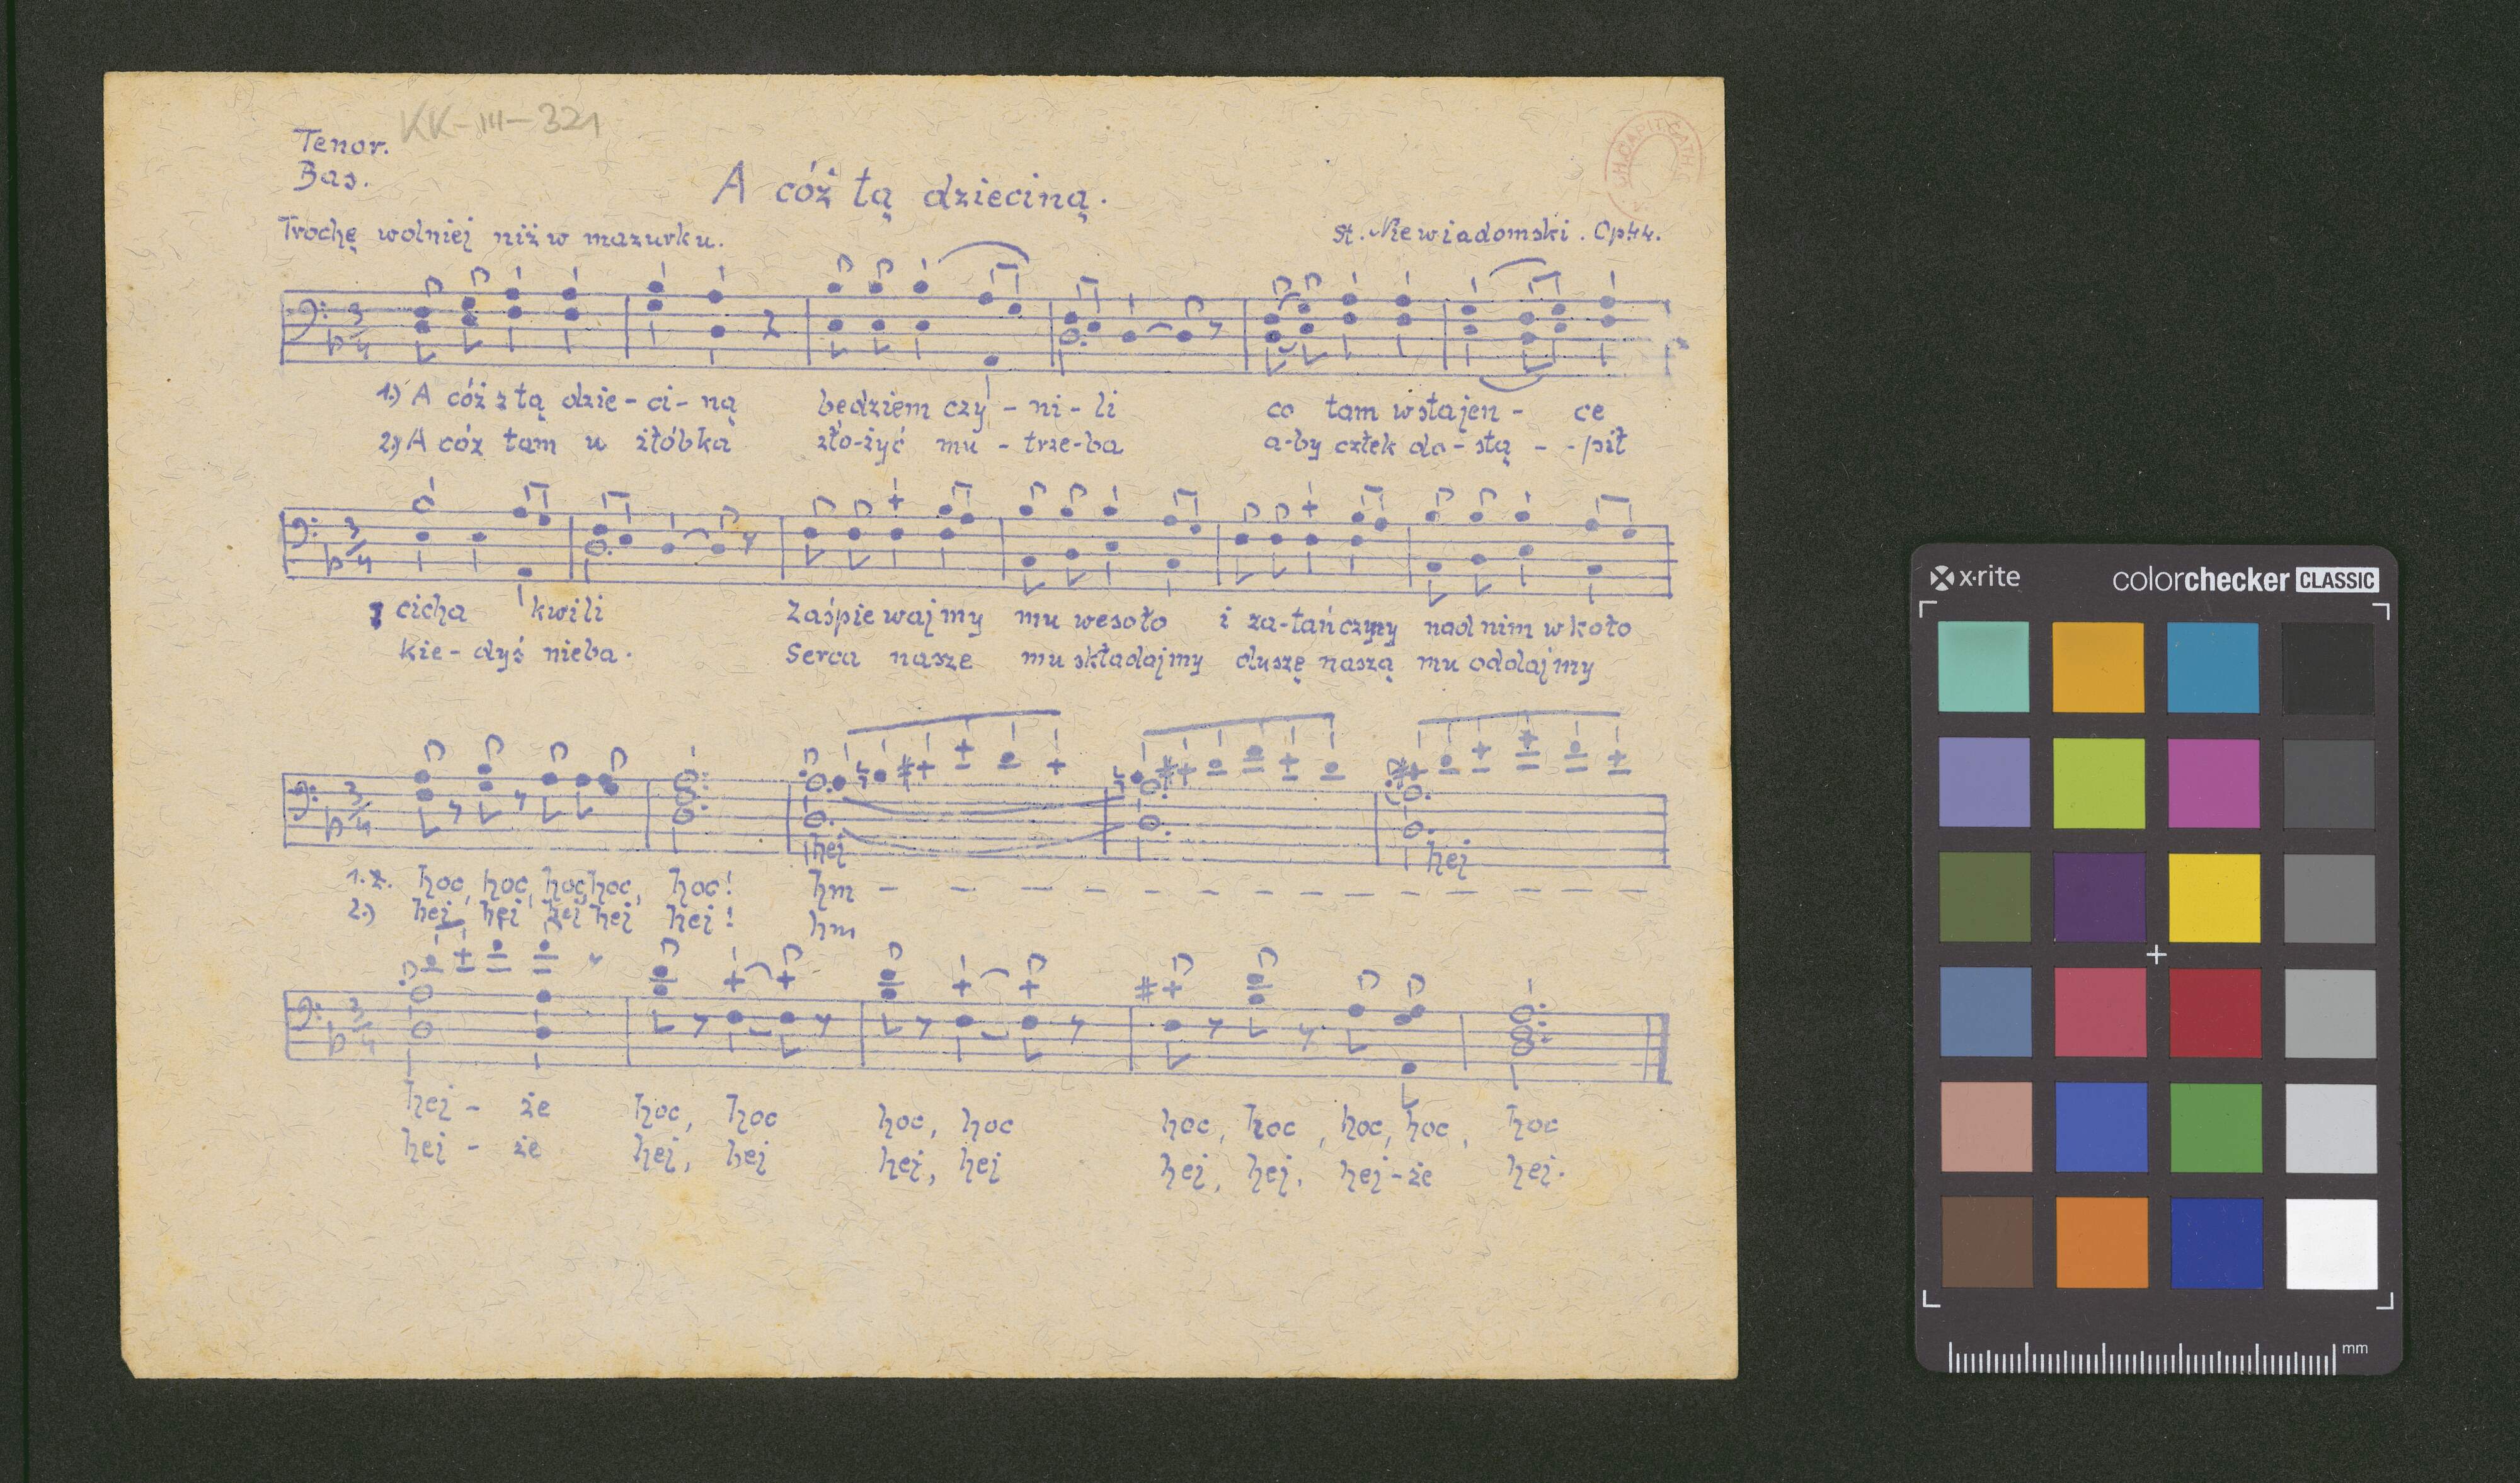 KK-III-321
Tenor.
Bas.
A cóż tą dzieciną.
Trochę wolniej niż w mazurku.
St. Niewiadomski. Op 44.
3/4
1.) A cóż z tą dzie-ci-ną będziem czy-ni-li co tam wstajen- ce
2.) A cóz tam u żłóbka zło-żyć mu-trze-ba a-by człek do-stą - - pił
3/4
cicha kwili Zaśpiewajmy mu wesoło i za-tańczymy nad nim w koło
kie-dyś nieba. Serca nasze mu składajmy duszę naszą mu oddajmy
3/4
hej hej
1. hoc, hoc, hoc, hoc, hoc! hm - - - - - - - - - - - - - -
2.) hej hej hej hej hej! hm
3/4
hej - że hoc, hoc hoc, hoc hoc, hoc, hoc, hoc, hoc
hej - że hej, hej hej, hej hej, hej, hej-że hej.
x·rite
colorchecker CLASSIC
mm